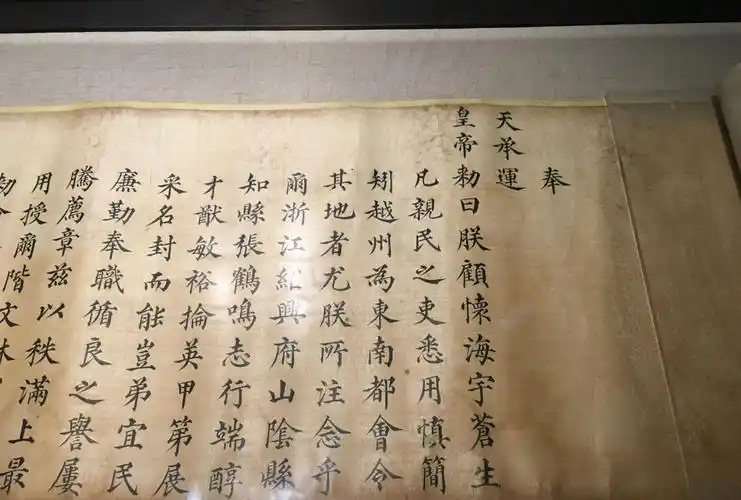 奉
天承運
皇帝勅曰朕顧懷海宇蒼生
凡親民之吏悉用慎簡
矧越州為東南都會令
其地者尤朕所注念乎
爾浙江紹興府山陰縣
知縣張鶴鳴志行端醇
才猷敏裕掄英甲第展
采名封而能豈弟宜民
廉勤奉職循良之譽屢
騰薦章茲以秩滿上最
用授爾階文林
勅命